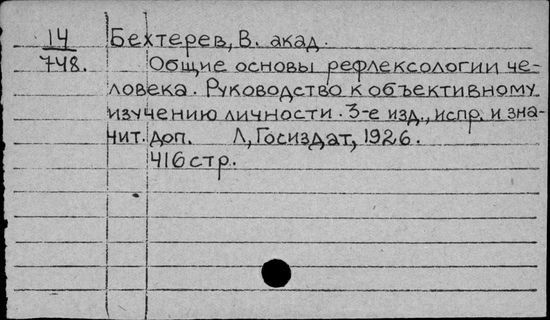 14 Бехтерев, В. акад.
748. Общие основы рефлексологии че-
ловека. Руководство к объективному
изучению личности. 3-е изд., испр. и зна-
чит. доп. Л, Госиздат, 1926.
416 стр.